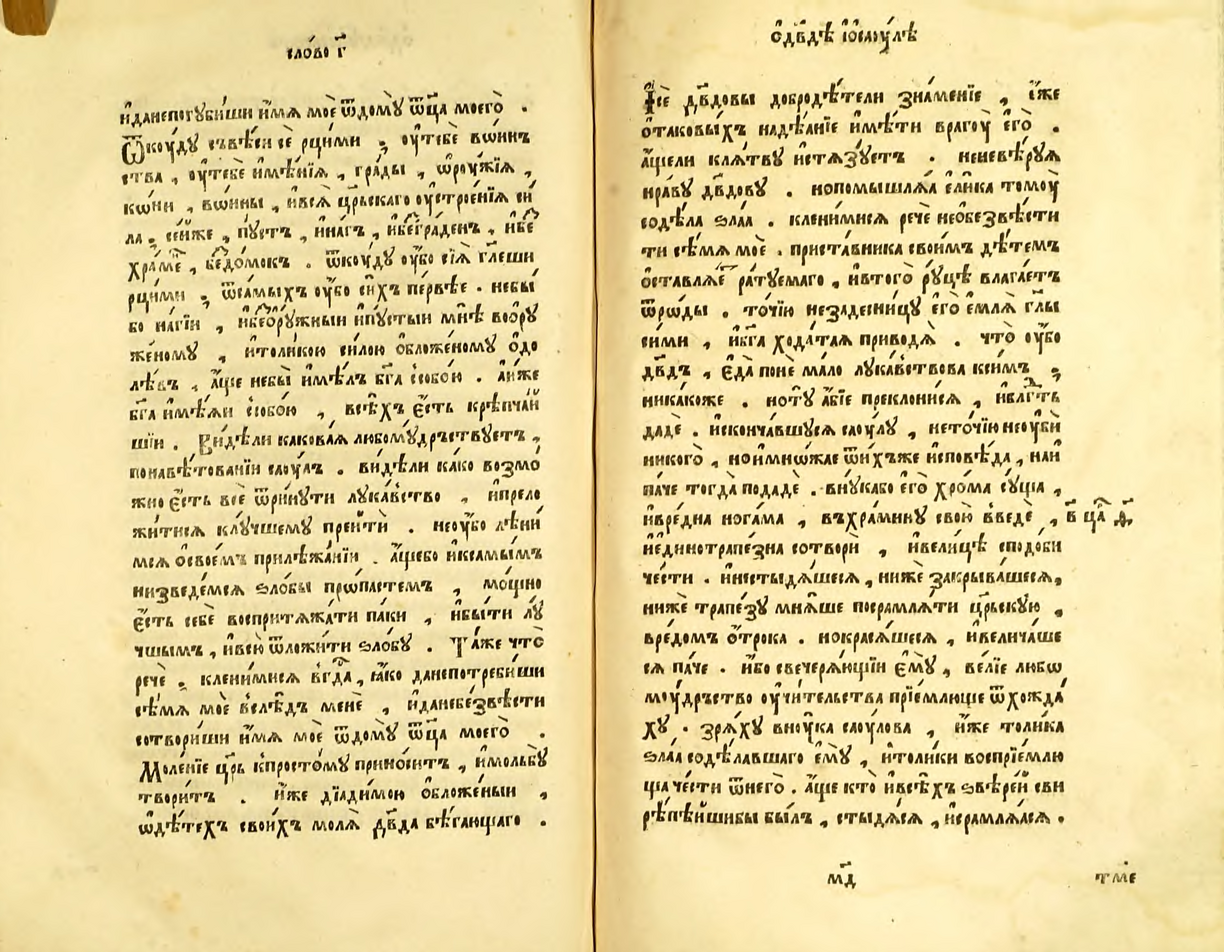 сло́во г҃
и҆данепогꙋби́ши и҆́мѧ моѐ ѿдо́мꙋ ѿц҃а моего̀ .
Ѿкоу́дꙋ съвѣ́си сѐ рцы́ми ; оу҆тебѐ во́инъ
ства , оу҆тебѐ и҆мѣ́нїѧ , гра́ды , ѡ҆роу́жїѧ ,
ко́ни , во́ины , и҆всѧ̀ црⷭ҇скаго оу҆строе́нїѧ си́
ла . се́йже , пꙋ́стъ , и҆на́гъ , и҆бе́граденъ , и҆бе
хра́ми́е , бе́домокъ . ѿкоу́дꙋ оу҆̀бо сїѧ̀ гл҃еши
рцы́ми ; ѿса́мыхъ оу҆̀бо си́хъ пе́рвѣе . небы̀
бо на́гїи , и҆беѻ҆рꙋ́жныи и҆пꙋсты́и мнѣ̀ воѻ҆рꙋ
же́номꙋ , и҆толи́кою си́лою ѻ҆бло́женомꙋ ѻ҆до
лѣ́въ , а҆́ще небы̀ и҆мѣ́лъ бг҃а съсобо́ю . а҆и́же
бг҃а и҆мѣ́ѧи съсобо́ю , всѣ́хъ є҆́сть крѣпча́й
шїи . Ви́дѣли какова́ѧ любомꙋ́дрьствꙋетъ ,
понавѣ́тованїи саоу́лъ . ви́дѣли ка́ко возмо́
жно є҆́сть всѐ ѿри́нꙋти лꙋка́вство , и҆прело
жи́тисѧ клꙋ́чшемꙋ прейтѝ . неоу҆́бо лѣни́
мсѧ ѻ҆свое́мъ прилѣжа́нїи . а҆́щебо и҆ксамы́мъ
низведе́мсѧ ѕло́бы про́пастемъ , мо́щно
є҆́сть себѐ воспритѧжа́ти па́ки , и҆бы́ти лꙋ́
чшымъ , и҆всю̀ ѿложи́ти ѕло́бꙋ . Та́же что̀
речѐ . клени́мисѧ бг҃а , ꙗ҆́ко данепотреби́ши
сѣ́мѧ моѐ вслѣ́дъ менѐ , и҆данебезвѣ́сти
сотвори́ши и҆́мѧ моѐ ѿдо́мꙋ ѿц҃а моего̀ .
Моле́нїе цр҃ь кпросто́мꙋ прино́ситъ , и҆мольбꙋ̀
твори́тъ . и҆́же дїади́мою ѻ҆бложе́ныи ,
ѡ҆дѣ́тех свои́хъ молѧ̀ дв҃да бѣ́гающаго .
Ѻ҆дв҃дѣ и҆ѻ҆саоу́лѣ
Ісѐ дв҃довы добродѣ́тели зна́менїе , і҆́же
ѻ҆таковы́хъ надѣ́анїе и҆мѣ́ти врагоу̀ є҆го̀ .
а҆́щели клѧ́твꙋ и҆стѧзꙋ́етъ . неневѣ́рꙋѧ
нра́вꙋ дв҃довꙋ . нопомышлѧ́ѧ є҆ли́ка томоу̀
содѣ́ла ѕла́ѧ . клени́мисѧ речѐ необезвѣ́сти
ти сѣ́мѧ моѐ . приста́вника свои́мъ дѣ́темъ
ѻ҆ставлѧ́е ра́тꙋемаго , и҆втого̀ рꙋ́цѣ влага́етъ
ѿро́ды . то́чїю незадесни́цꙋ є҆го̀ є҆́млѧ гл҃ы
си́ми , и҆бг҃а хода́таѧ приводѧ̀ . что̀ оу҆̀бо
дв҃дъ , є҆да̀ понѐ ма́ло лꙋка́вствова ксимъ ;
ника́коже . нотꙋ̀ а҆́бїе преклони́сѧ , и҆блгⷣть
дадѐ . и҆сконча́вшꙋсѧ саоу́лꙋ , нето́чїю неоу҆бѝ
нико́го , нои҆мно́жае ѿни́хъже и҆сповѣ́да , наи
па́че тогда̀ подадѐ . внꙋ́кабо є҆го̀ хро́ма сꙋ́ща ,
и҆вре́дна нога́ма , въхра́минꙋ свою̀ введѐ , в҃ ца҇ д҃.
и҆єдинотрапе́зна сотворѝ , и҆вели́цѣ сподо́би
че́сти . и҆нестыдѧ́шесѧ , нижѐ закрыва́шесѧ,
нижѐ трапе́зꙋ мнѧ́ше посрамлѧ́ти црⷭ҇кꙋю ,
вре́домъ ѻ҆́трока . нокрасѧ́шесѧ , и҆велича́ше
сѧ па́че . и҆́бо свечерѧ́ющїи є҆мꙋ̀ , ве́лїе любо
моу́дрьство оу҆чи́тельства прїе́млюще ѿхожда́
хꙋ . зрѧ́хꙋ внꙋ́ка саоу́лова , и҆́же толи́ка
ѕла́ѧ содѣ́лавшаго є҆мꙋ̀ , и҆толи́ки воспрїе́млю
ща че́сти ѿнего̀ . а҆́ще кто̀ и҆всѣ́хъ ѕвѣре́й сви
рѣпѣ́йшибы бы́лъ , стыдѧ́сѧ , и҆срамлѧ́ѧсѧ .
мд҃
тмѣ